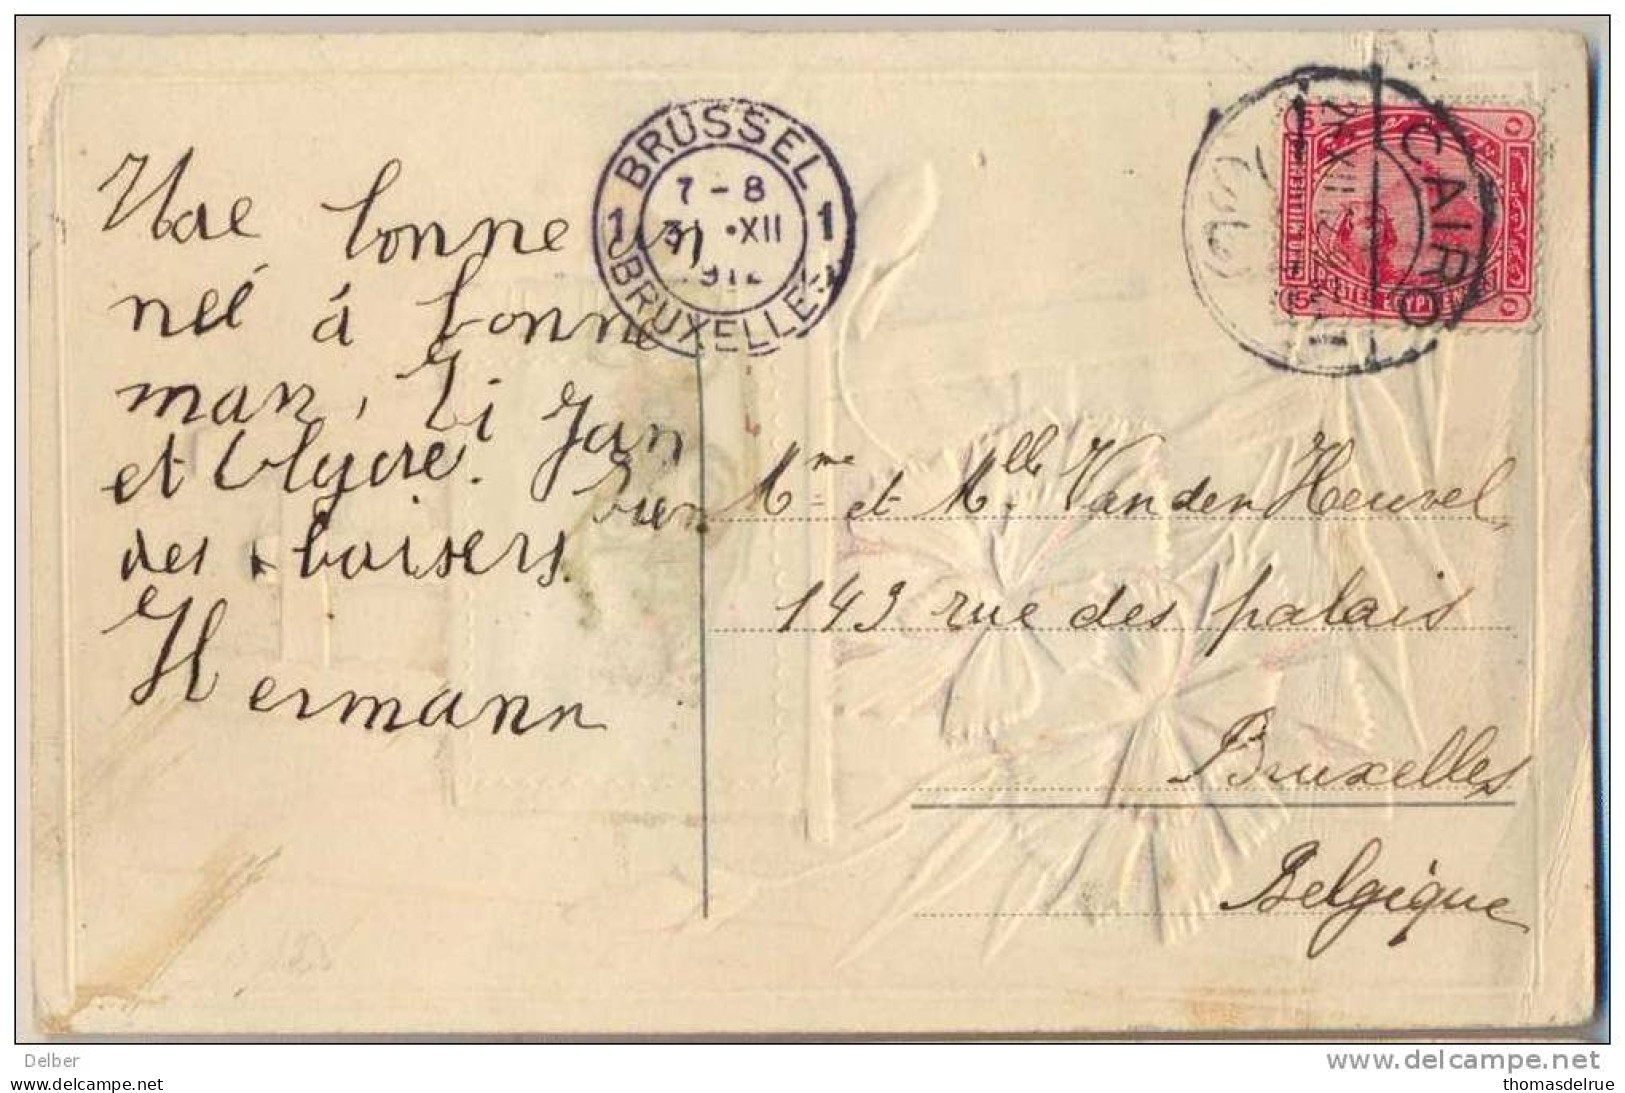 Une bonne an
neé á bonne
man, Ti Jan
et Clyore. bien
des baisers
Hermann
BRUSSEL
1 7-8 1
31 •XII
1912
BRUXELLES
CAIRO
POSTES EGYPTIENNES
5
Mme et Mlle Van den Heuvel,
143 rue des palais
Bruxelles
Belgique
Delber
delcampe.net
(c) thomasdelrue
thomasdelrue